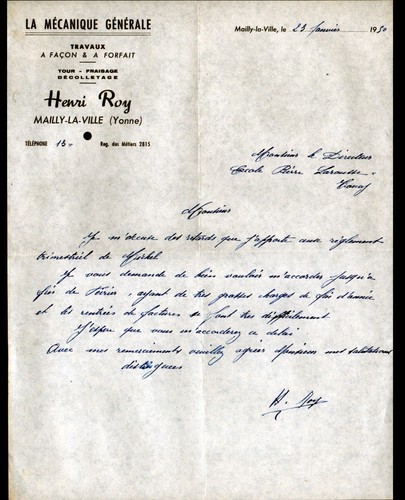 LA MÉCANIQUE GÉNÉRALE
TRAVAUX
A FAÇON & A FORFAIT
TOUR - FRAISAGE
DÉCOLLETAGE
Henri Roy
MAILLY-LA-VILLE (Yonne)
TÉLÉPHONE 15 Reg. des Métiers 2815
Mailly-la-Ville, le 23 Janvier 1950
Monsieur le Directeur
École Pierre Larousse
Toucy
Monsieur
Je m'excuse des retards que j'apporte aux règlement
trimestriel de Michel
Je vous demande de bien vouloir m'accorder jusqu'a
fin de Février, ayant de très grosses charges de fin d'année
et les rentrées de factures se font très difficilement
J'espère que vous m'accorderez ce délai
Avec mes remerciements veuillez agréer Monsieur mes salutations
distinguées
H. Roy